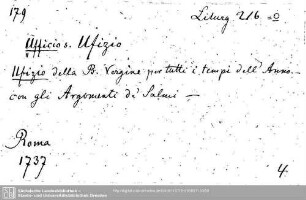 179
Liturg. 216.
Ufficio s. Ufizio
Ufizio della B. Vergine per tutti i tempi dell' Anno
con gli Argomenti de' Salmi —
Roma
1737
4.
Sächsische Landesbibliothek -
Staats- und Universitätsbibliothek Dresden